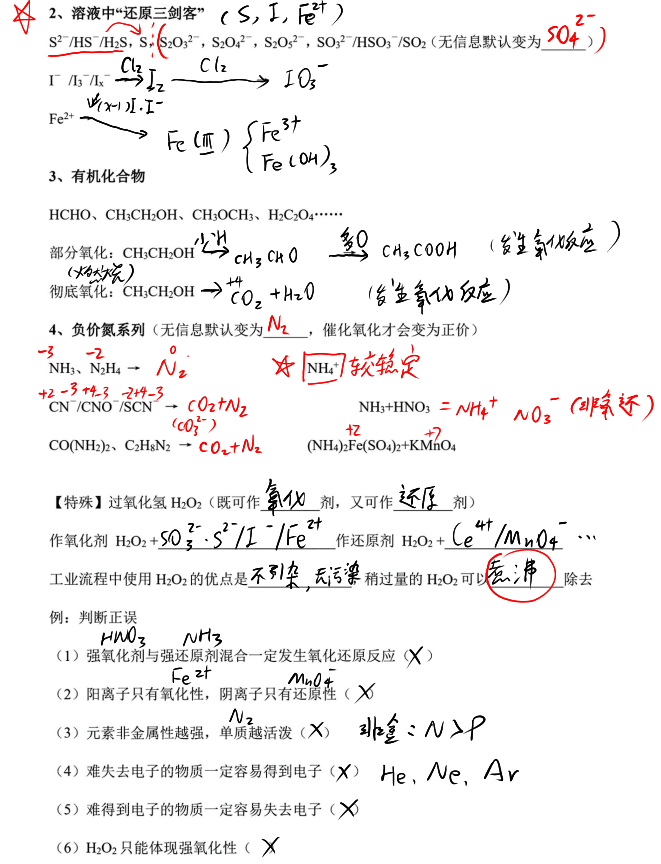 2、溶液中“还原三剑客” (S, I, Fe²⁺)
S²⁻/HS⁻/H₂S，S，(S₂O₃²⁻，S₂O₄²⁻，S₂O₅²⁻，SO₃²⁻/HSO₃⁻/SO₂（无信息默认变为 SO₄²⁻ ）)
I⁻ /I₃⁻/Iₓ⁻ —Cl₂→ I₂ —Cl₂→ IO₃⁻
(x-1)I·I⁻
Fe²⁺ → Fe(Ⅲ) { Fe³⁺
Fe(OH)₃
3、有机化合物
HCHO、CH3CH2OH、CH3OCH3、H2C2O4……
部分氧化：CH3CH2OH —少H→ CH3CHO —多O→ CH3COOH (发生氧化反应)
彻底氧化：CH3CH2OH → +4 CO2+H2O (发生氧化反应)
4、负价氮系列（无信息默认变为 N₂ ，催化氧化才会变为正价）
-3 -2 0
NH3、N2H4 → N₂ ☆ NH₄⁺ 较稳定
+2 -3 +4 -3 -2+4-3
CN⁻/CNO⁻/SCN⁻ → CO2+N2 NH3+HNO3 = NH4⁺ NO3⁻ (非氧还)
(CO₃²⁻) +2 +7
CO(NH2)2、C2H8N2 → CO2+N2 (NH4)2Fe(SO4)2+KMnO4
【特殊】过氧化氢 H2O2（既可作 氧化 剂，又可作 还原 剂）
作氧化剂 H2O2 + SO₃²⁻·S²⁻/I⁻/Fe²⁺ 作还原剂 H2O2 + Ce⁴⁺/MnO4⁻ …
工业流程中使用 H2O2 的优点是 不引杂，无污染 稍过量的 H2O2 可以 煮沸 除去
例：判断正误
HNO3 NH3
（1）强氧化剂与强还原剂混合一定发生氧化还原反应（ X ）
Fe²⁺ MnO4⁻
（2）阳离子只有氧化性，阴离子只有还原性（ X ）
N₂
（3）元素非金属性越强，单质越活泼（ X ） 非金：N>P
（4）难失去电子的物质一定容易得到电子（ X ） He、Ne、Ar
（5）难得到电子的物质一定容易失去电子（ X ）
（6）H2O2 只能体现强氧化性（ X